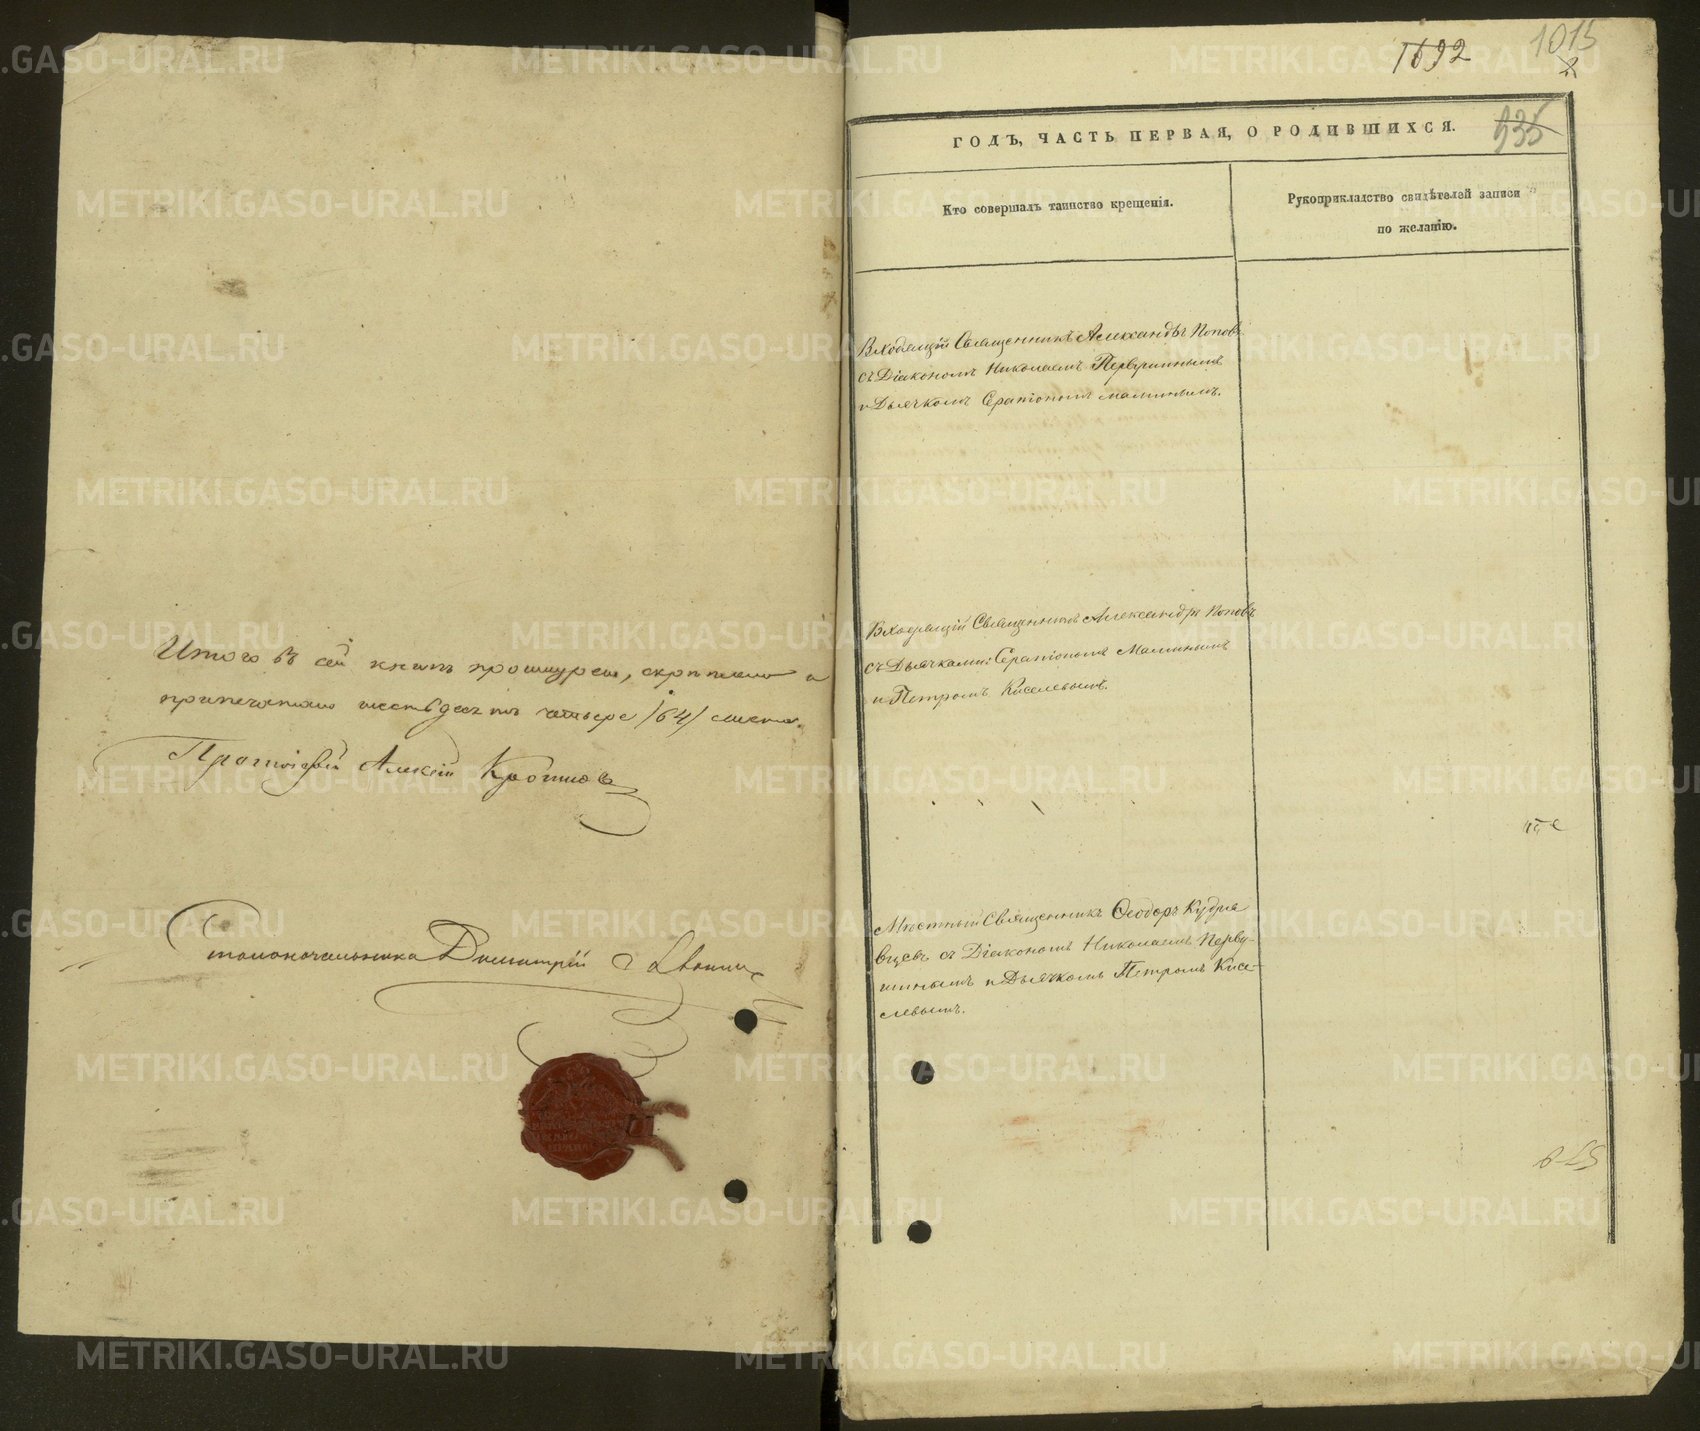 Итого въ сей книгѣ прошнуровано, скрѣплено и
припечатано шестьдесятъ четыре /64/ листа.
Протоіерей Алексій
Столоначальника Димитрій
1692
1015
2
935
ГОДЪ, ЧАСТЬ ПЕРВАЯ, О РОДИВШИХСЯ.
Кто совершалъ таинство крещенія.
Рукоприкладство свидѣтелей записи
по желанію.
Входящій Священникъ Александръ Поповъ
съ Діакономъ Николаемъ Первушинымъ
и Дьячкомъ Серапіономъ Маминымъ.
Входящій Священникъ Александръ Поповъ
съ Дьячками: Серапіономъ Маминымъ
и Петромъ Киселевымъ.
Мѣстный Священникъ Ѳеодоръ Кудря
вцевъ съ Діакономъ Николаемъ Перву-
шинымъ и Дьячкомъ Петромъ Кисе-
левымъ.
METRIKI.GASO-URAL.RU